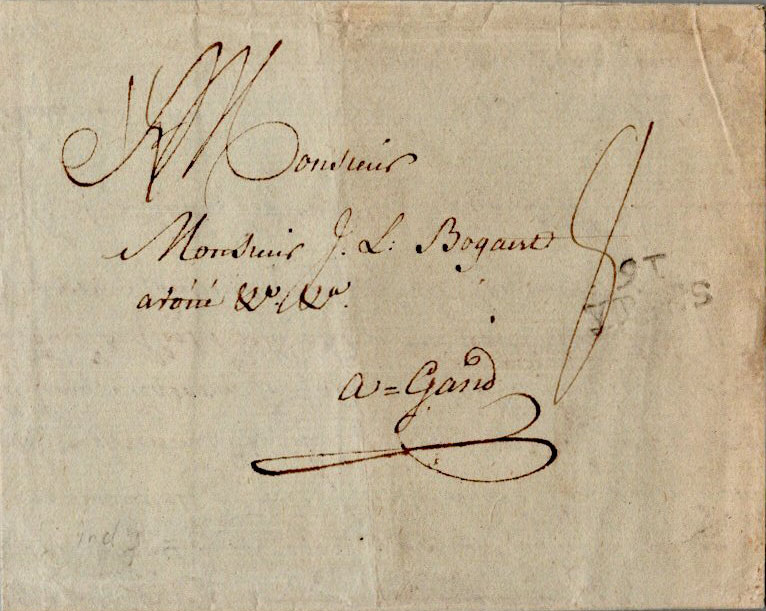 Monsieur
Monsieur J. L. Bogaert
avoué &a. &a.
a = Gand